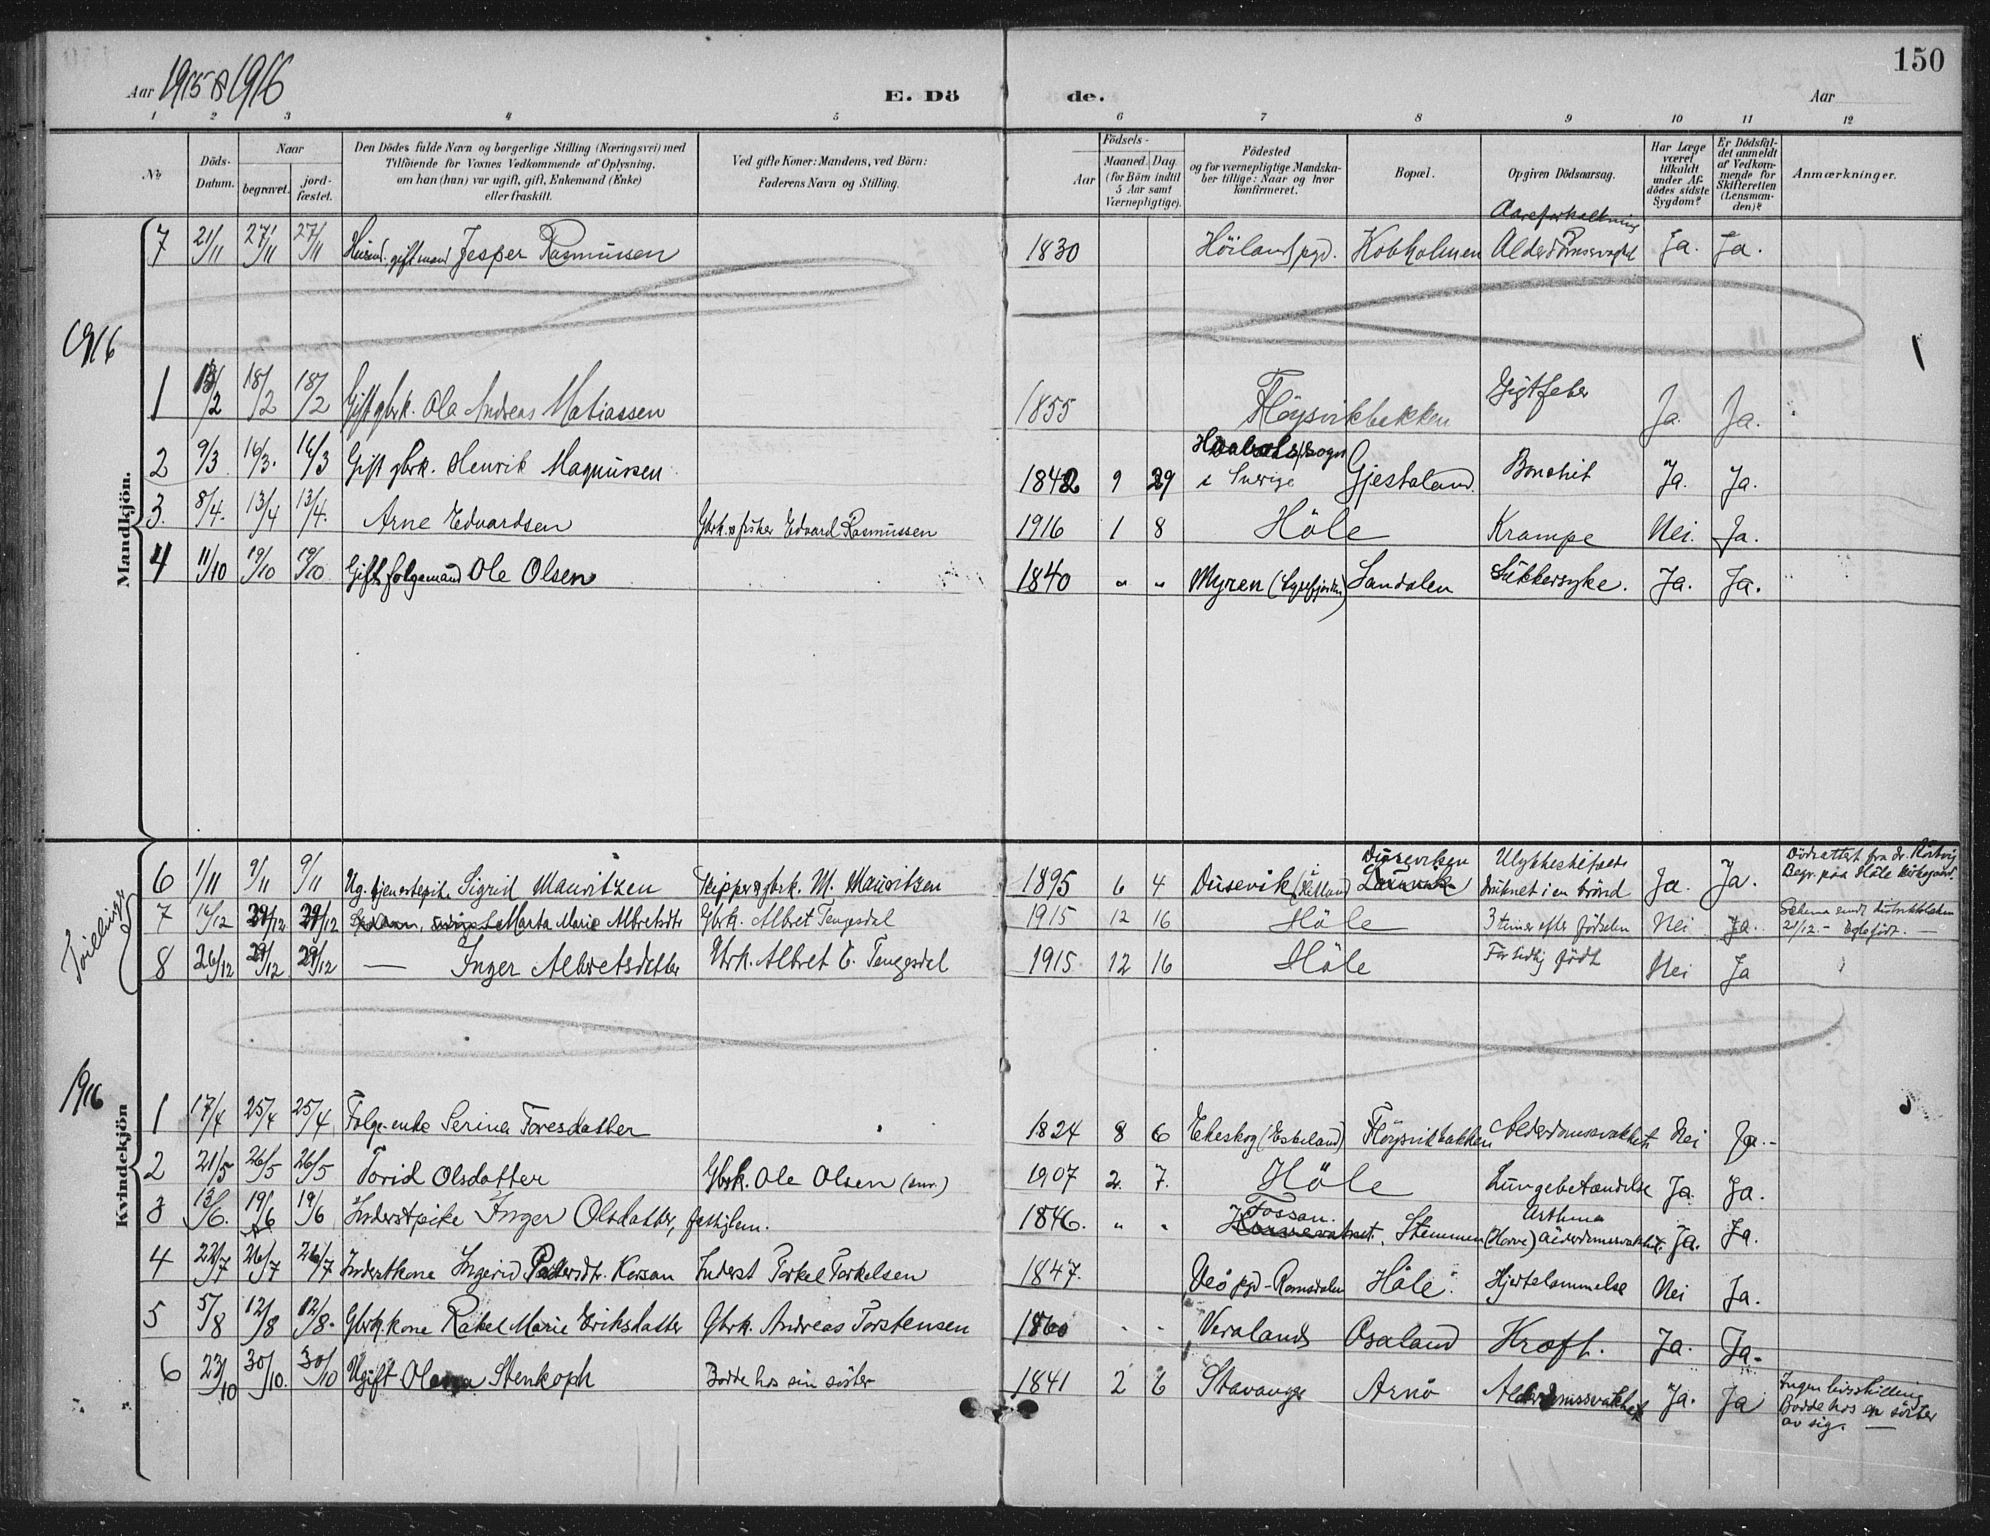 150
Aar 1915 & 1916 E. Dö de. Aar
1 2 3 4 5 6 7 8 9 10 11 12
No
Döds-Datum.
Naar
begravet.
jord-fæstet.
Den Dödes fulde Navn og borgerlige Stilling (Næringsvei) med
Tilföiende for Voxnes Vedkommende af Oplysning,
om han (hun) var ugift, gift, Enkemand (Enke)
eller fraskilt.
Ved gifte Koner: Mandens, ved Börn:
Faderens Navn og Stilling.
Födsels-
Aar
Maaned Dag
(for Börn indtil
5 Aar samt
Værnepligtige).
Födested
og for værnepligtige Mandska-
ber tillige: Naar og hvor
konfirmeret.
Bopæl.
Opgiven Dödsaarsag.
Har Læge
været
tilkaldt
under Af-
dödes sidste
Sygdom?
Er Dödsfal-
det anmeldt
af Vedkom-
mende for
Skifteretten
(Lensman-
den)?
Anmærkninger.
Aareforkalkning
7 21/11 27/11 27/11 gift mand Jesper Rasmussen 1830 Höiland pgd. Kobholmen Ja. Ja.
1916
Mandkjön.
1 /2 18/2 18/2 Gift gbrk. Ola Andreas Matiassen 1855 Flöysvikbakken Gigtfeber Ja. Ja.
2 9/3 16/3. 16/3 Gift gbrk. Henrik Magnussen 1842 9 29 i Sverige Gjestaland. Bronchit Ja. Ja.
3. 8/4. 13/4 13/4. Arne Edvardsen Gbrk. & fisker Edvard Rasmussen 1916 1 8 Höle Krampe Nei. Ja.
4 11/10 19/10 19/10 Gift folgemand Ole Olsen 1840 " " Myren (Lysefjorden) Sandalen Sukkersyke. Ja. Ja.
Tvillinger
6 1/11 9/11 9/11 Ug. tjenestepike Sigrid Mauritzen Skipper & gbrk. M. Mauritzen 1895 6 4 Dusevik (Retland) Duseviken Ulykkestilfælde druknet i en brönd Ja. Ja. Dödsattest fra dr. Begr. paa Höle kirkegaard.
7 16/12 29/12 29/12 Marta Marie Albretsdtr Gbrk. Albret Tengesdal 1915 12 16 Höle 3 timer efter födselen Nei Ja. Schema sendt distriktslægen 21/12. – Egtefödt. —
8 26/12 29/12 29/12 — Inger Albretsdatter Gbrk. Albret E. Tengesdal 1915 12 16 Höle For tidlig födt Nei Ja
1916
Kvindekjön
1 17/4 25/4 25/4 Folge-enke Serina Toresdatter 1824 8 6 Ekeskog (Espeland) Flöysvikbakken Alderdomssvakhet Nei Ja.-
2 21/5 26/5 26/5 Torid Olsdatter Gbrk. Ole Olsen 1907 2. 7. Höle Lungebetændelse Ja. Ja.
3 13/6. 19/6 19/6 Inderstpike Inger Olsdatter, 1846. " " Fossan. Stemmen (Horve) Asthma Alderdomssvakhet. Ja. Ja.
4 22/7 26/7 26/7 Inderstkone Ingerid Pedersdtr. Korsan Inderst Torkel Torkelsen 1847. Veö pgd - Romsdalen Höle. Hjertelammelse Nei Ja.
5 5/8 12/8 12/8. Gbrk. kone Rakel Marie Eriksdatter Gbrk. Andreas Torstensen 1860 - - Veraland Osaland Kræft. Ja. Ja.
6 23/10 30/10. 30/10 Ugift Olena Stenkoph Bodde hos sin söster 1841 2 6 Stavanger Arnö Alderdomssvakhet Ja. Ja Ingen livsstilling Bodde hos en söster av sig. —